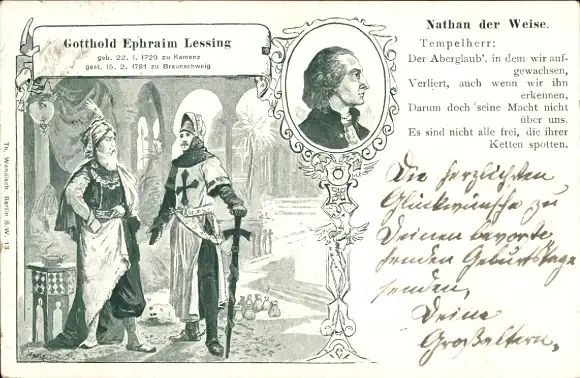 Gotthold Ephraim Lessing
geb. 22. 1. 1729 zu Kamenz
gest. 15. 2. 1781 zu Braunschweig
Nathan der Weise.
Tempelherr:
Der Aberglaub', in dem wir auf-
gewachsen,
Verliert, auch wenn wir ihn
erkennen,
Darum doch seine Macht nicht
über uns.
Es sind nicht alle frei, die ihrer
Ketten spotten.
Die herzlichsten
Glückwünsche zu
Deinen bevorste
henden Geburtstage
senden,
Deine
Großeltern.
Th. Wendisch, Berlin S.W. 13.